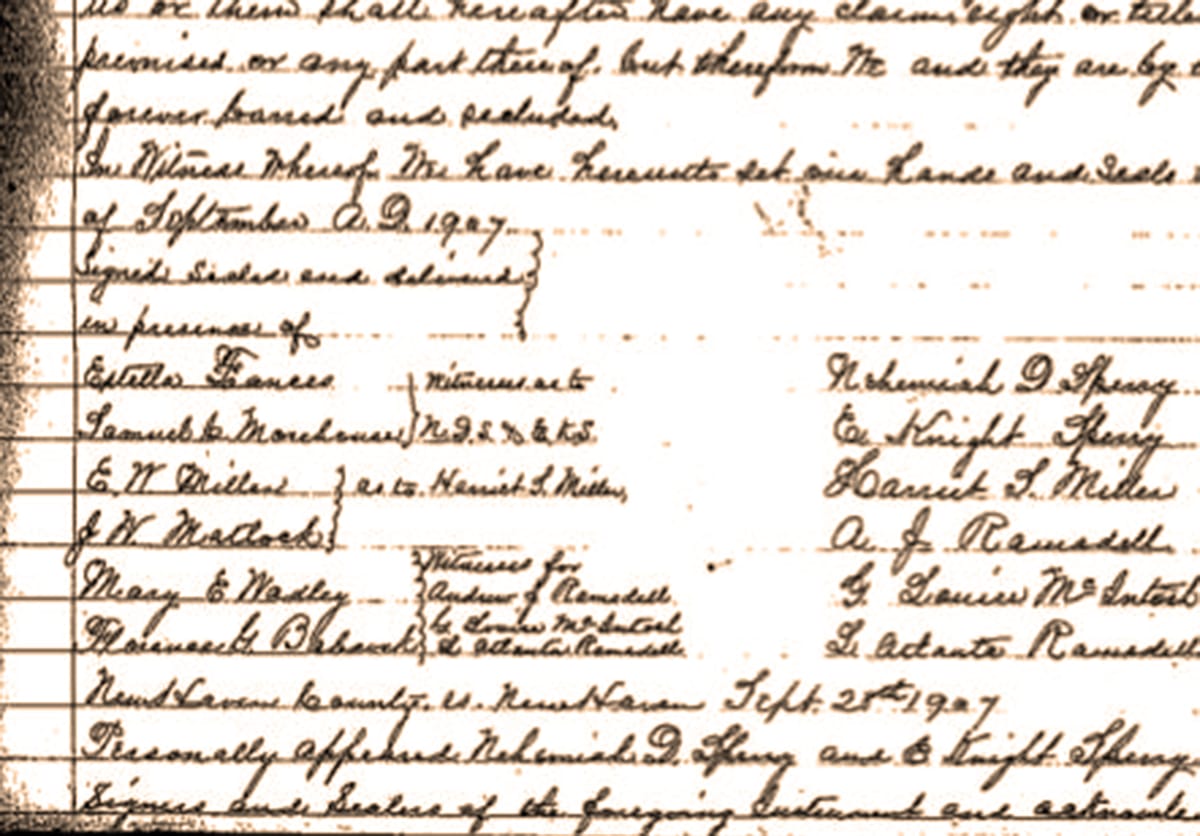 us or them shall hereafter have any claim right or title
premises or any part thereof, but therefrom We and they are by
forever barred and secluded,
In Witness Whereof We have hereunto set our hands and Seals
of September A.D. 1907
Signed Sealed and delivered
in presence of
Estella Frances } Witnesses as to Nehemiah D Sperry
Samuel C Morehouse } N.D.S. & E.K.S. E Knight Sperry
E. W Miller } as to Harriet S. Miller, Harriet S. Miller
J W. Matlock } A. J Ramsdell
Mary E Wadley } Witness for Andrew J Ramsdell G. Louise Mc Intosh
Florence G. Babcock } G Louise Mc Intosh L Atlanta Ramsdell L Atlanta Ramsdell
New Haven County. ss. New Haven Sept. 25th 1907
Personally appeared Nehemiah D. Sperry and E Knight Sperry
Signers and Sealers of the foregoing Instrument and